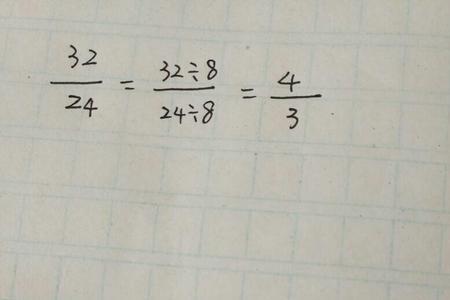 32/24 = 32÷8/24÷8 = 4/3